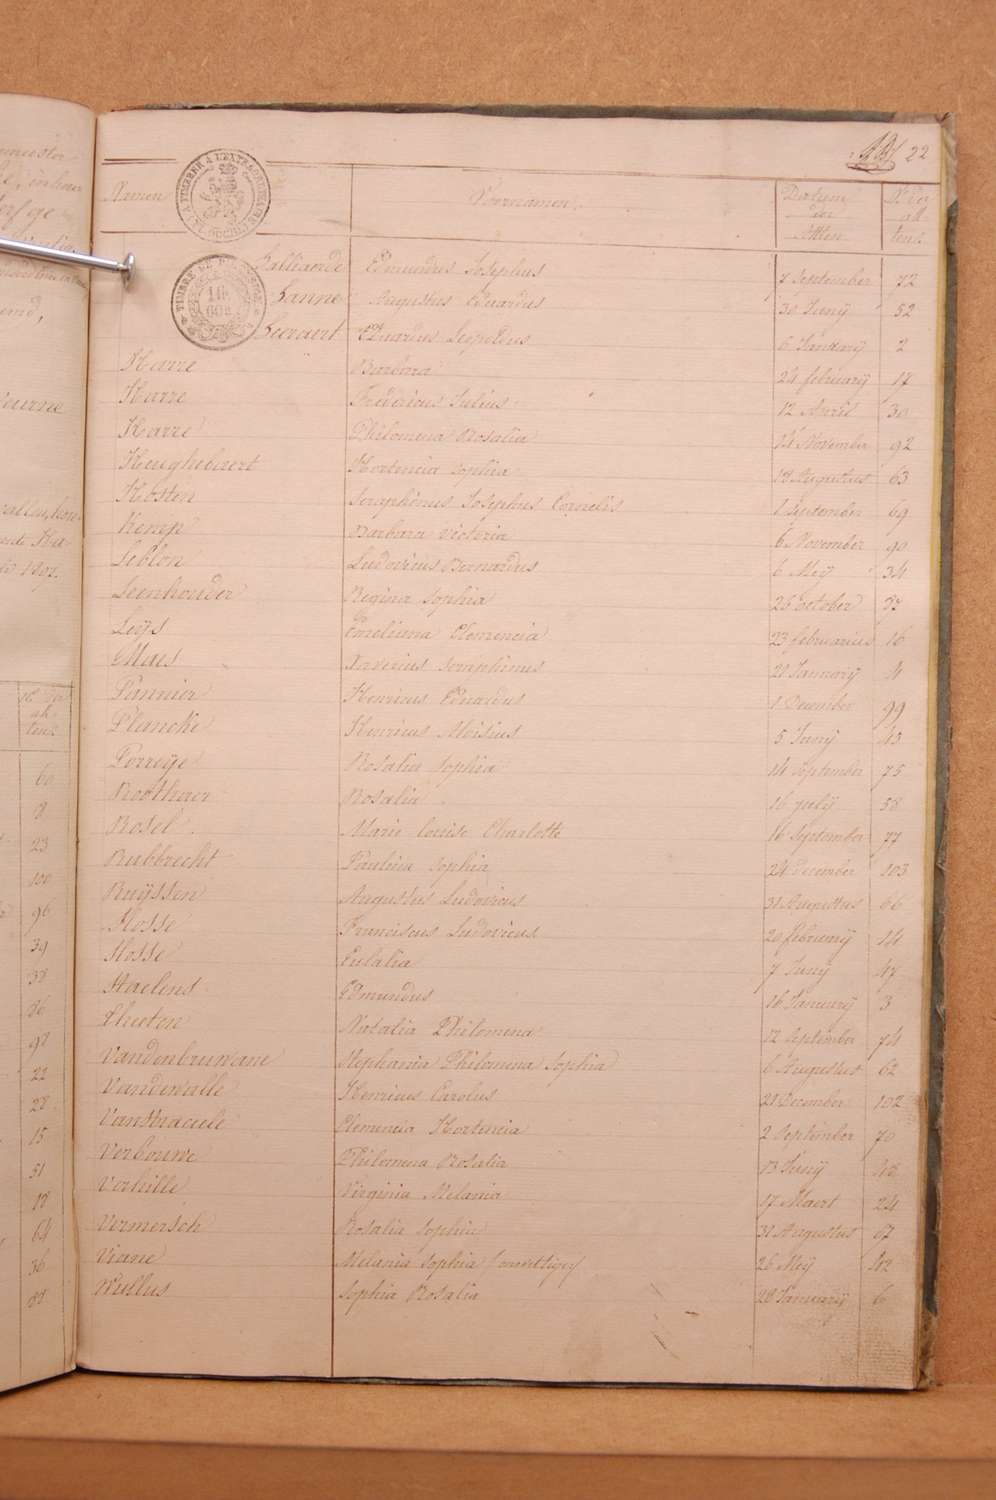 22
Namen Voornamen Datum der Akten N.º der akten
TIMBRE A L'EXTRAORDINAIRE
TIMBRE
Edmundus Josephus 7 September 72
Augustus Eduardus 30 Junÿ 52
Eduardus Leopoldus 6 Januarÿ 2
Karre Barbara 24 februarÿ 17
Karre Fredericus Julius 12 April 30
Karre Philomena Rosalia 14 November 92
Hortencia Sophia 18 Augustus 63
Kosten Seraphinus Josephus Cornelis 1 September 69
Kemp Barbara Victoria 6 November 90
Leblon Ludovicus Bernardus 6 Meÿ 34
Leenhouder Regina Sophia october
Leÿs Emeliana Clemencia 23 februarius 16
Maes Xaverius Seraphinus Januarÿ 4
Pannier Henricus Eduardus 1 December 99
Plancke Henricus Aloisius 5 Junÿ 43
Porreÿe Rosalia Sophia 14 September 75
Roothaer Rosalia 16 julÿ 58
Rosel Marie Louise Charlotte 16 September 77
Rubbrecht Paulina Sophia 24 December 103
Ruÿssen Augustus Ludovicus 31 Augustus 66
Slosse Franciscus Ludovicus 20 februarÿ 14
Slosse Eulalia 7 Junÿ 47
Staelens Edmundus 16 Januarÿ 3
Theeten Natalia Philomena 12 September 74
Vandenbruwane Stephania Philomena Sophia 6 Augustus 62
Vandewalle Henricus Carolus 21 December 102
Vanstraceele Clemencia Hortencia 2 September 70
Verbouwe Philomena Rosalia 13 Junÿ 48
Verhille Virginia Melania 17 Maert 24
Vermersch Rosalia Sophia 31 Augustus 67
Viane Melania Sophia 26 Meÿ 42
Wullus Sophia Rosalia 28 Januarÿ 6
60
8
23
100
96
39
38
86
98
22
28
15
51
18
64
36
88